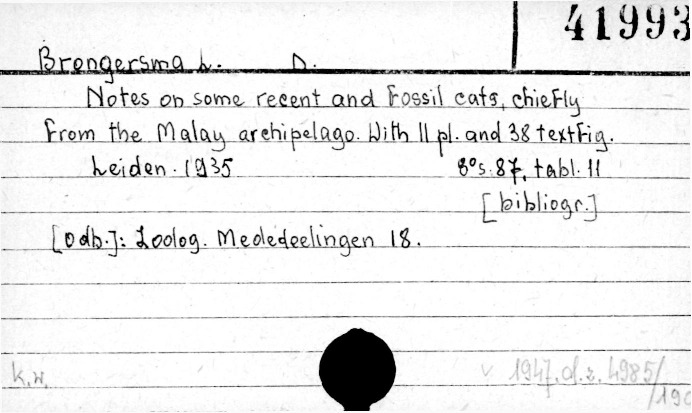 41993
Brongersma L. D.
Notes on some recent and fossil cats, chiefly
from the Malay archipelago. With 11 pl. and 38 textfig.
Leiden. 1935 8° s. 87, tabl. 11
[bibliogr.]
[odb.]: Zoolog. Mededeelingen 18.
k.w. v 1947. d. z. 4985/
/190